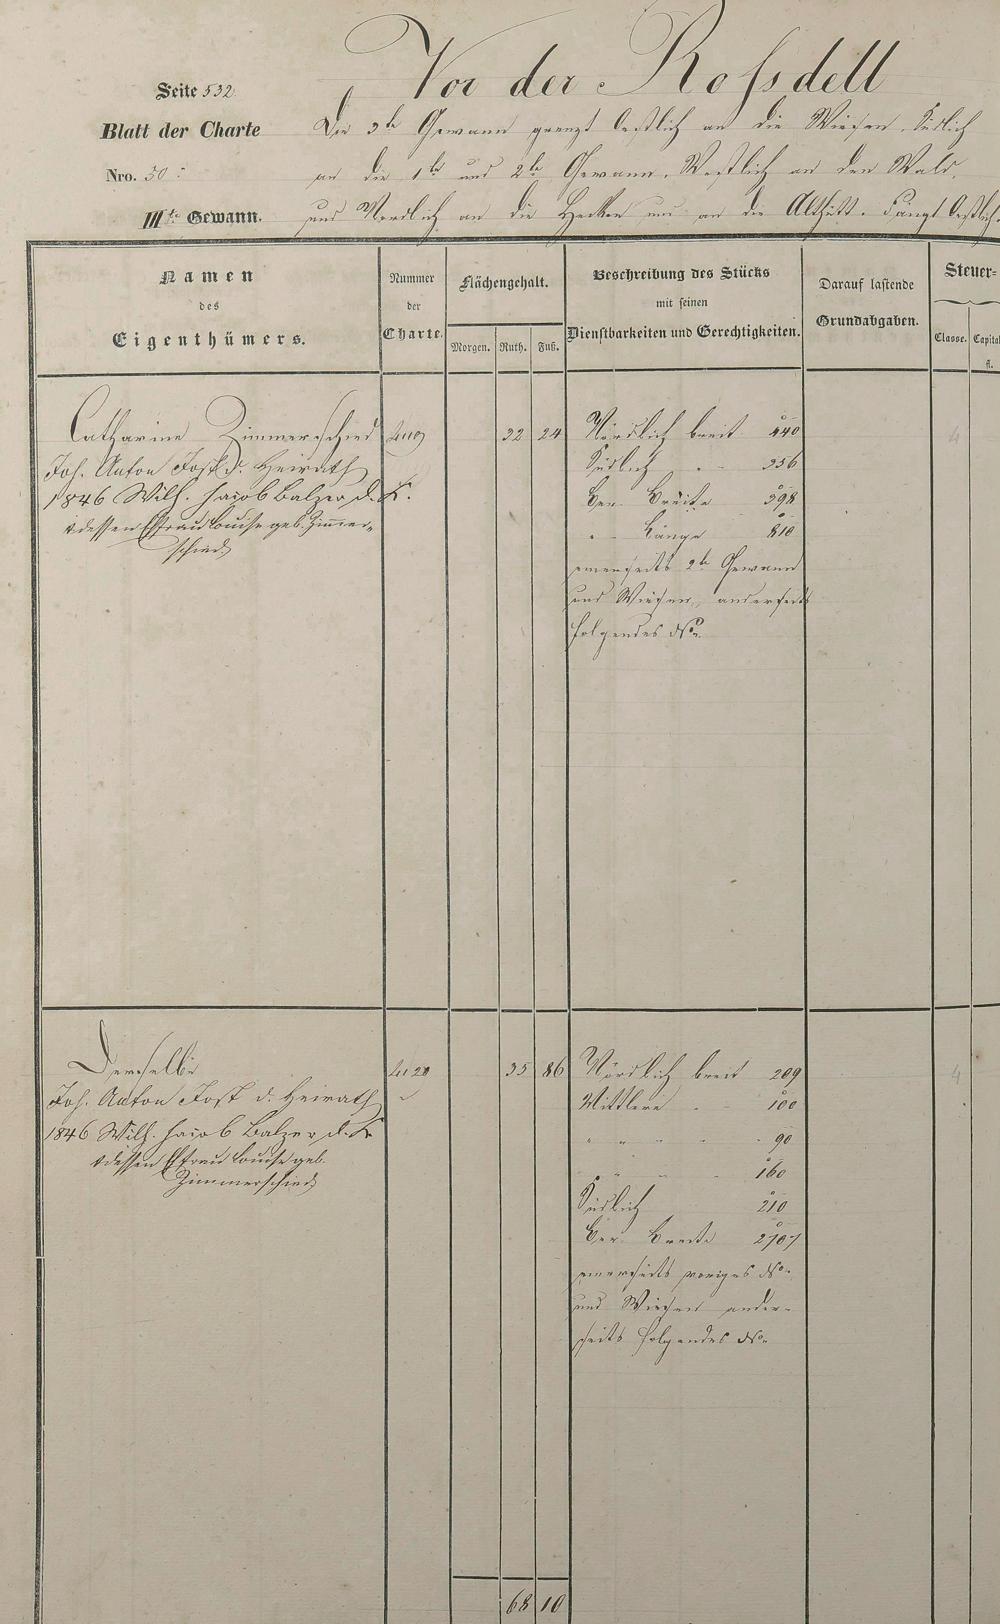 Vor der Roſsdell
Seite 532
Die 3te Gewann grenzt Oestlich an die Wiesen, Südlich
Blatt der Charte
an die 1te und 2te Gewann, Westlich an den Wald,
Nro. 30
und Nordlich an die Hecken und an die . Fängt Oestlich
IIIte Gewann.
Namen
des
Eigenthümers.
Nummer
der
Charte.
Flächengehalt.
Morgen. Ruth. Fuß.
Beschreibung des Stücks
mit seinen
Dienstbarkeiten und Gerechtigkeiten.
Darauf lastende
Grundabgaben.
Steuer-
Classe. Capital
fl.
Catharine Zimmerschied
Joh. Anton Jost d. Heirath
1846 Wilh. Jacob Balzer d. K.
dessen Efrau Louise geb. Zimmer-
schied
32 24
Nördlich breit 440
Südlich 356
Ber. Breite 398
" Länge 810
einerseits 2te Gewann
und Wiesen, anderseits
folgendes No.
4
Derselbe
Joh. Anton Jost d. Heirath
1846 Wilh. Jacob Balzer d. K.
dessen Efrau Louise geb.
Zimmerschied
35 86
Nördlich breit 209
Mittlere 100
" " " 90
" " 160
Südlich 210
Ber. Breite
einerseits voriges No.
und Wiesen ander-
seits folgendes No.
4
68 10